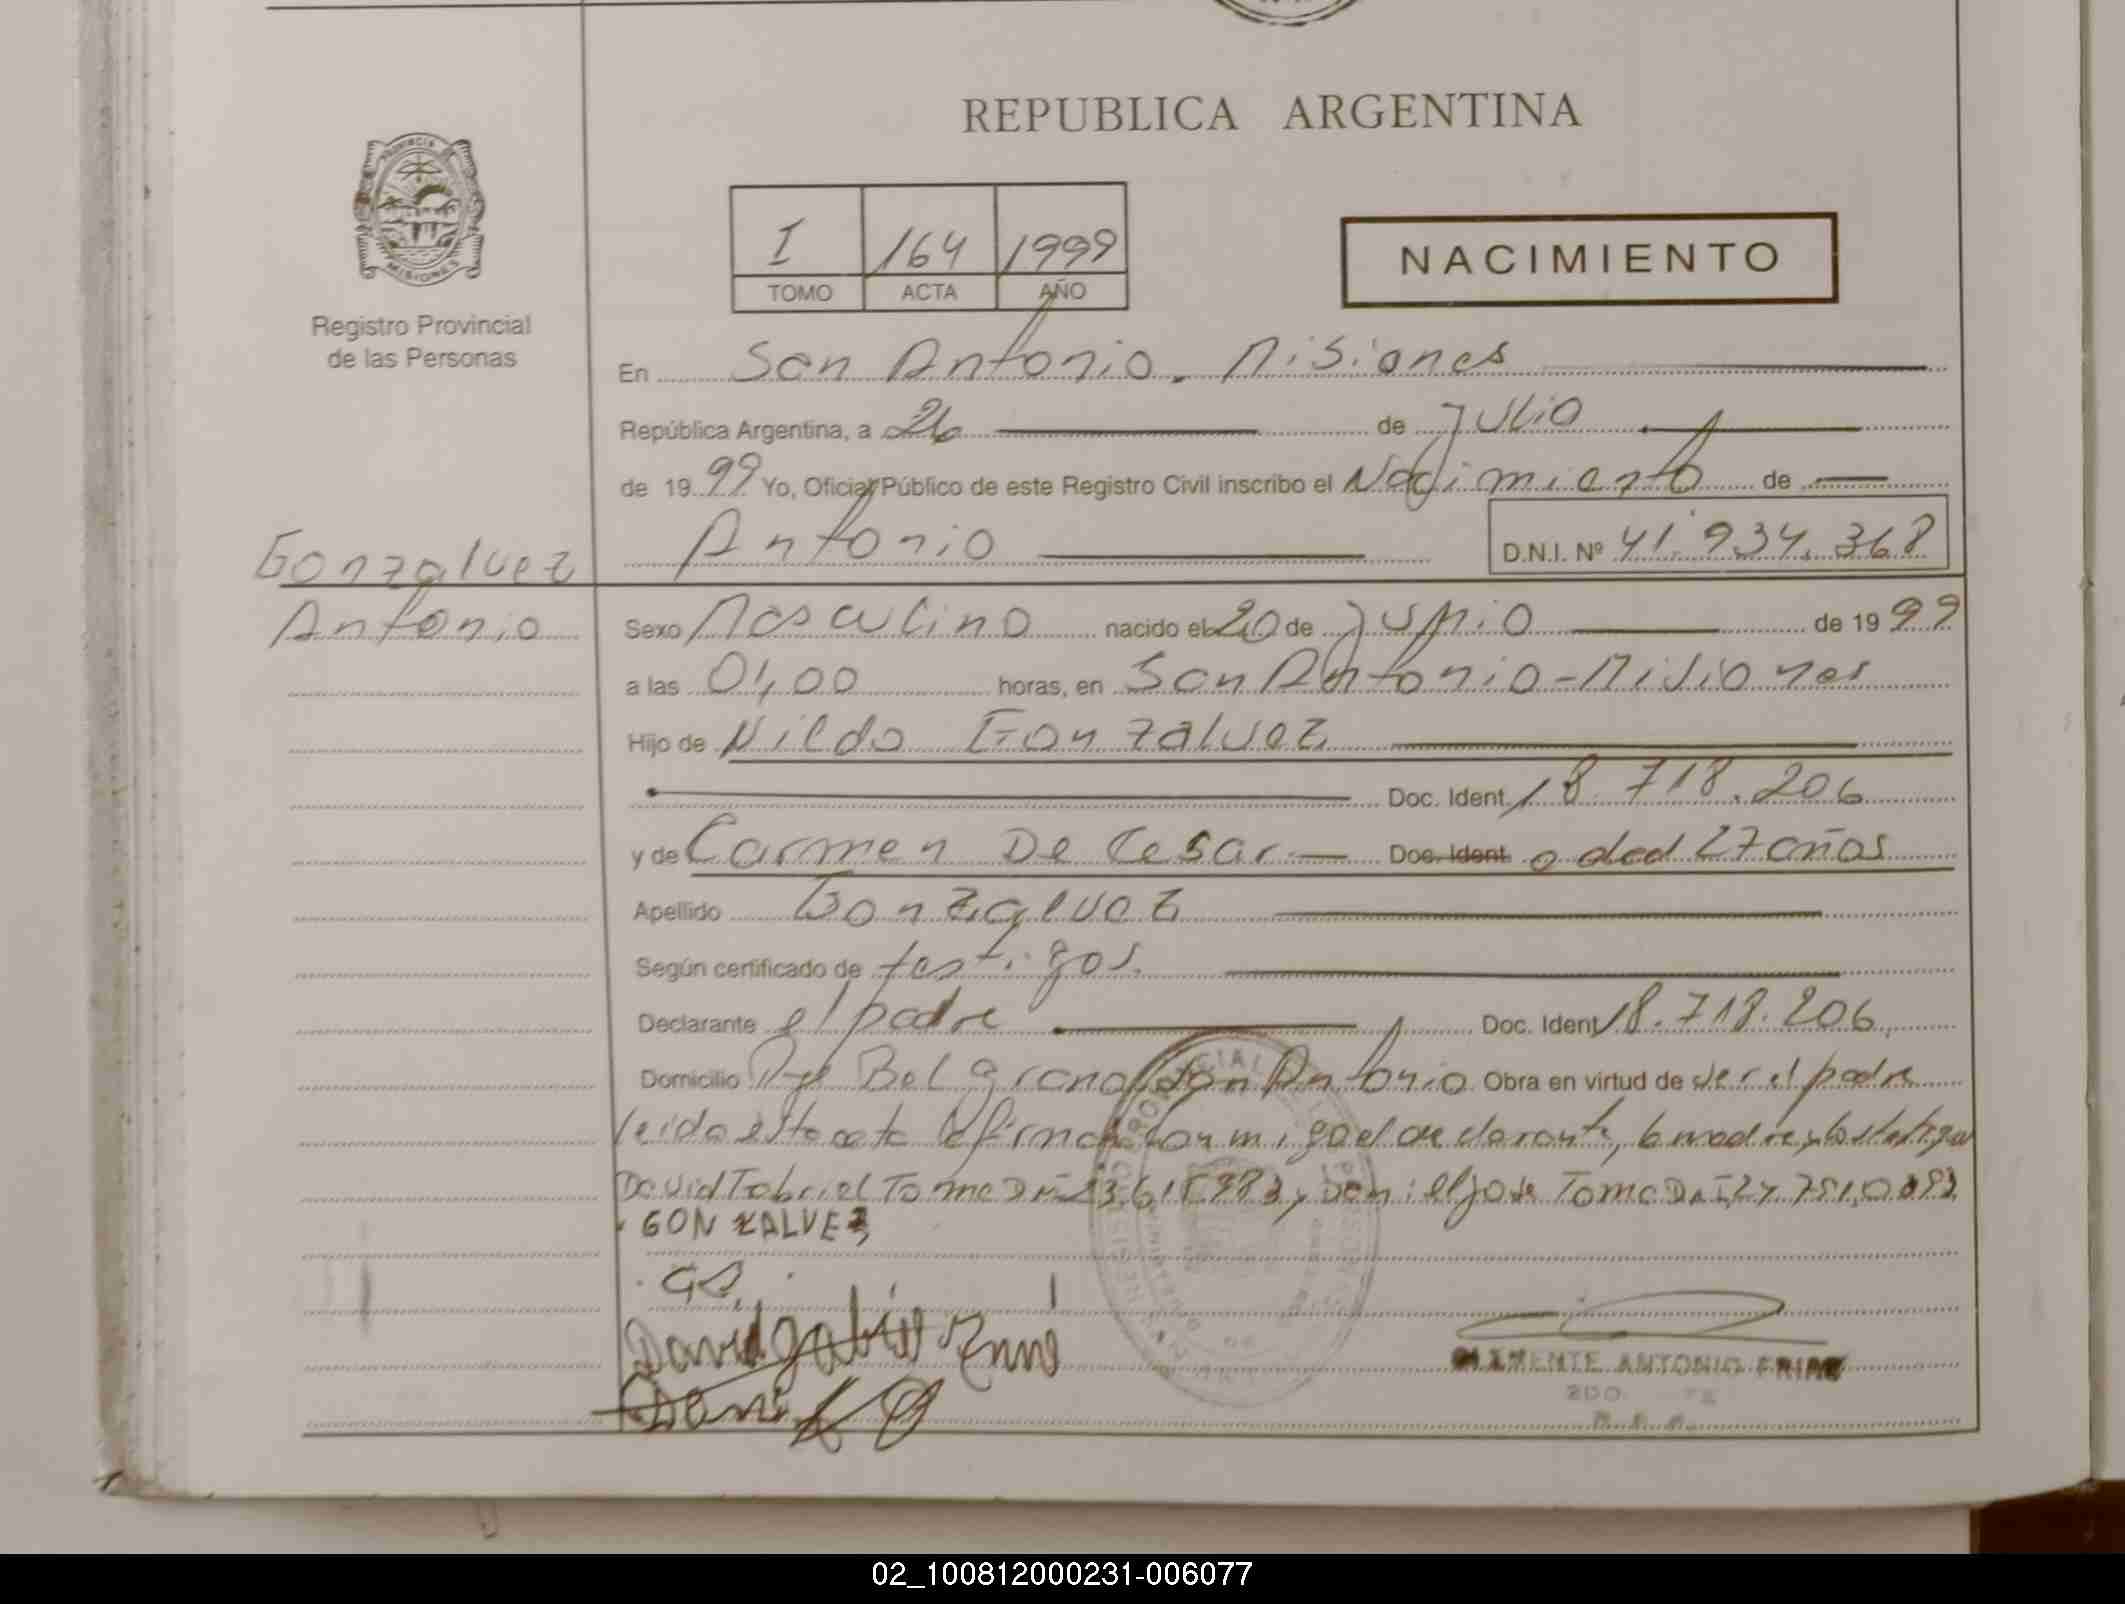 REPUBLICA ARGENTINA
PROVINCIA
MISIONES
Registro Provincial
de las Personas
I 164 1999
TOMO ACTA AÑO
NACIMIENTO
En San Antonio. Misiones
República Argentina, a 26 de Julio
de 1999 Yo, Oficial Público de este Registro Civil inscribo el Nacimiento de
Antonio D.N.I. Nº 41.934.368
Gonzalvez
Antonio
Sexo Masculino nacido el 20 de Junio de 1999
a las 01,00 horas, en San Antonio - Misiones
Hijo de Nildo Gonzalvez
Doc. Ident. 18.718.206
y de Carmen De Cesar Doc. Ident. o ded 27 años
Apellido Gonzalvez
Según certificado de testigos
Declarante el padre Doc. Ident. 18.718.206
Domicilio Belgrano San Antonio Obra en virtud de ser el padre
leida esta acta la firma conmigo el declarante, la madre y los testigos
David Gabriel
GONZALVEZ
David Gabriel
CLEMENTE ANTONIO FRIAS
02_100812000231-006077